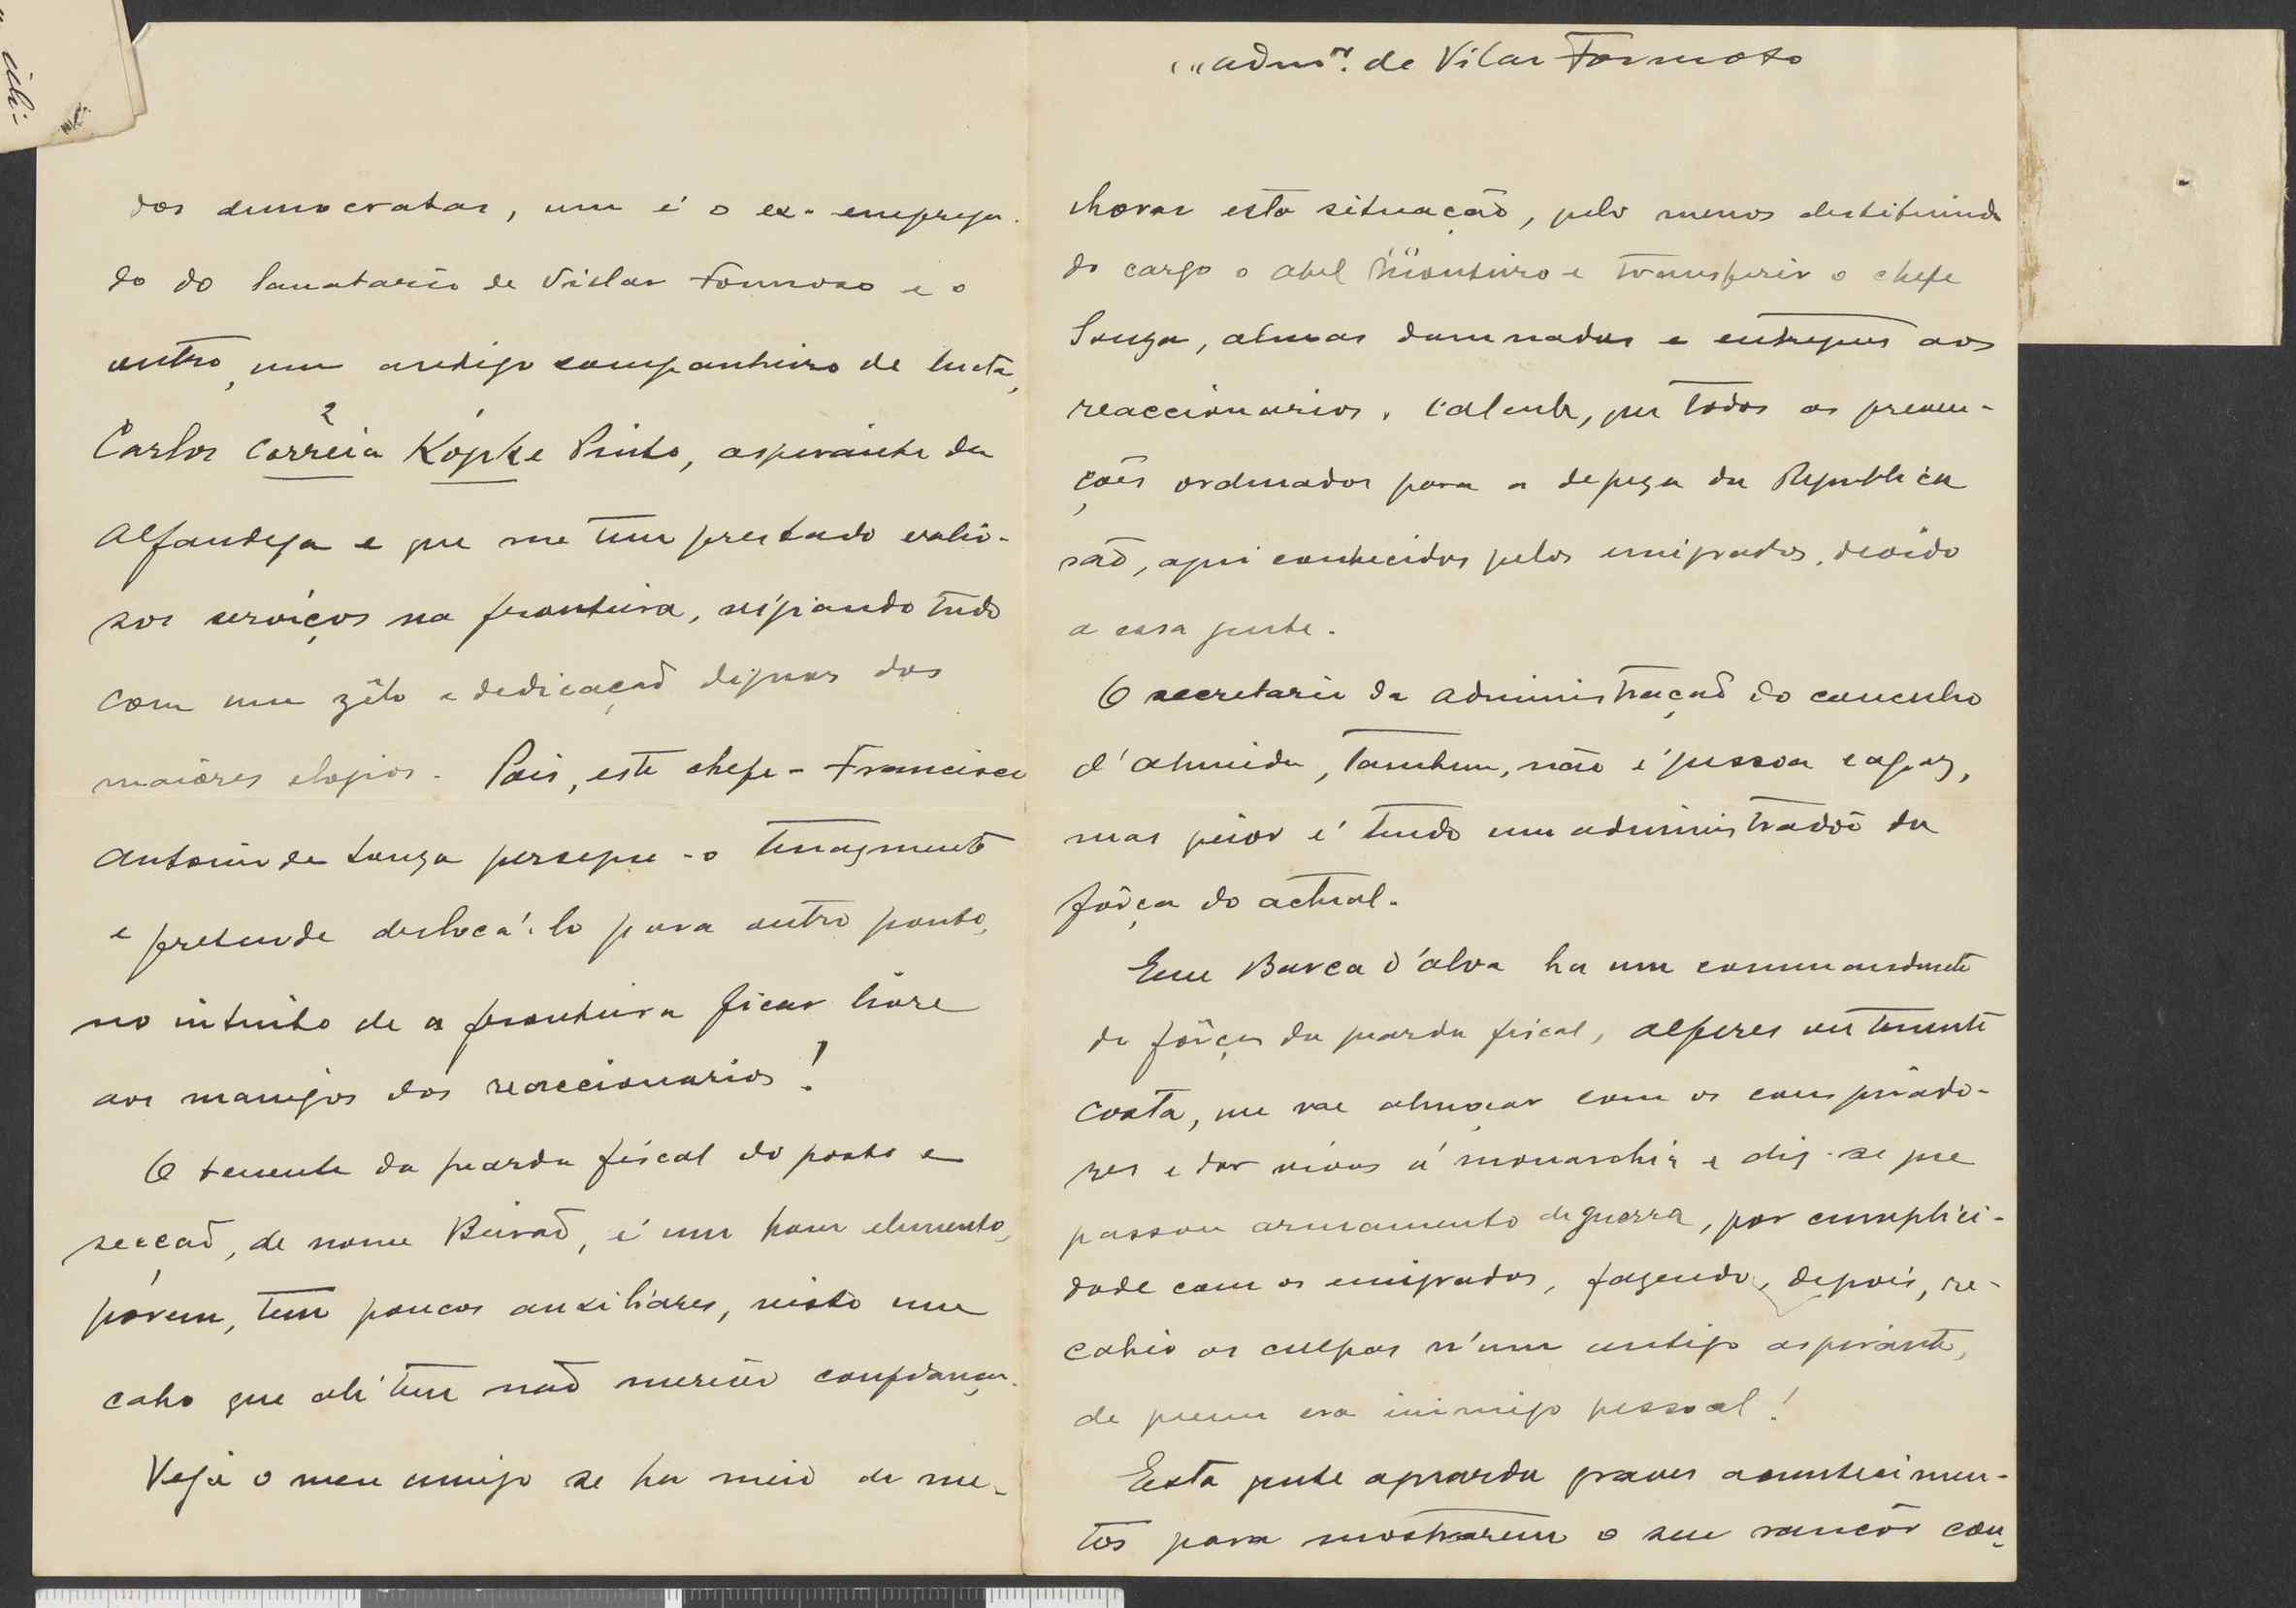 dos democratas, um é o ex-emprega-
do do Sanatario de Villar Formoso e o
outro, um antigo companheiro de lucta,
Carlos Corrêia Kópke Pinto, aspirante da
Alfandega e que me tem prestado valio-
sos serviços na fronteira, vigiando tudo
com um zêlo e dedicação dignos dos
maiores elogios. Pois, este chefe - Francisco
Antonio de Souza persegue-o tenazmente
e pretende deslocá-lo para outro ponto,
no intuito de a fronteira ficar livre
aos manejos dos reaccionarios!
O tenente da guarda fiscal do posto e
secção, de nome Beirão, é um bom elemento,
pórem, tem poucos auxiliares, visto um
cabo que ali tem não merecer confiança.
Veja o meu amigo se ha meio de me-
admor. de Vilar Formoso
lhorar esta situação, pelo menos destituindo
do cargo o Abel Monteiro e transferir o chefe
Souza, almas damnadas e entregues aos
reaccionarios. Calcule, que todas as preven-
ções ordenadas para a defeza da Republica
são, aqui conhecidas pelos emigrados, devido
a essa gente.
O secretario da administração do concelho
d'Almeida, tambem, não é pessoa capaz,
mas peior é tendo um administradôr da
fôrça do actual.
Em Barca d'Alva ha um commandante
da fôrça da guarda fiscal, alferes ou tenente
Costa, que vae almoçar com os conspirado-
res e dar vivas á monarchia e diz-se que
passou armamento de guerra, por cumplici-
dade com os emigrados, fazendo, depois, re-
cahir as culpas n'um antigo aspirante,
de quem era inimigo pessoal!
Esta gente aguarda graves acontecimen-
tos para mostrarem o seu rancôr con-